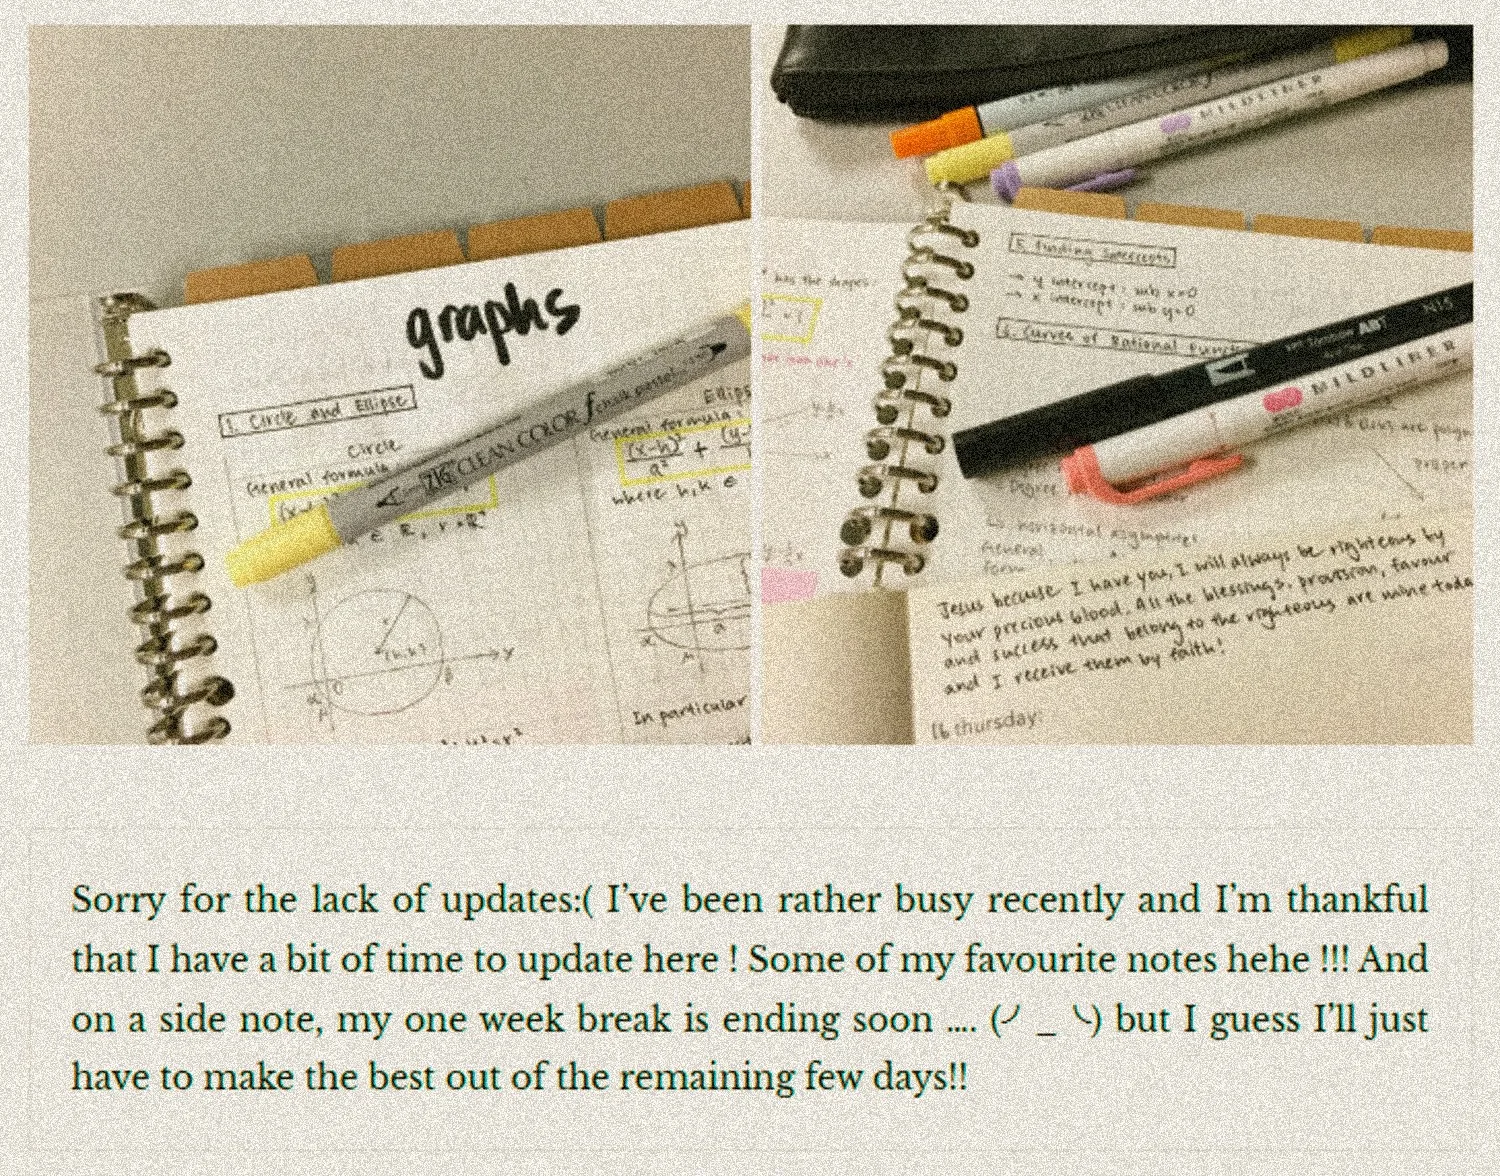 graphs
1. Circle and Ellipse
Circle
General formula
ZIG CLEAN COLOR f
chalk pastel
Ellips
General formula:
(x-h)² + (y-
a²
where h,k ∈
(h,k)
In particular
MILDLINER
has the
5. Finding Intercepts
→ y intercept : sub x=0
→ x intercept : sub y=0
6. Curves of Rational Funct
ABT
N15
MILDLINER
Degree
↳ horizontal asymptotes
General
form
Jesus because I have you, I will always be righteous by
Your precious blood. All the blessings, provision, favour
and success that belong to the righteous are mine toda
and I receive them by faith!
16 thursday:
Sorry for the lack of updates:( I’ve been rather busy recently and I’m thankful
that I have a bit of time to update here ! Some of my favourite notes hehe !!! And
on a side note, my one week break is ending soon .... (╯ _ ╰) but I guess I’ll just
have to make the best out of the remaining few days!!